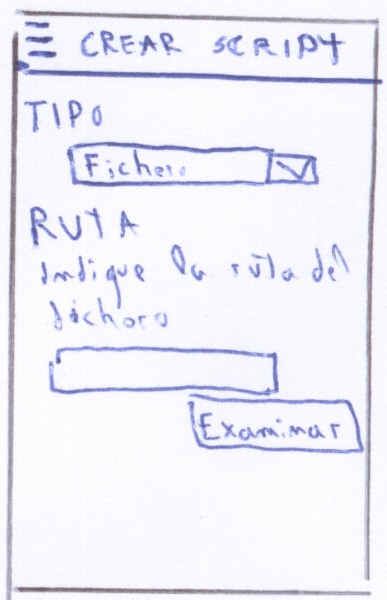 CREAR SCRIPT
TIPO
Fichero
RUTA
Indique la ruta del
fichero
Examinar